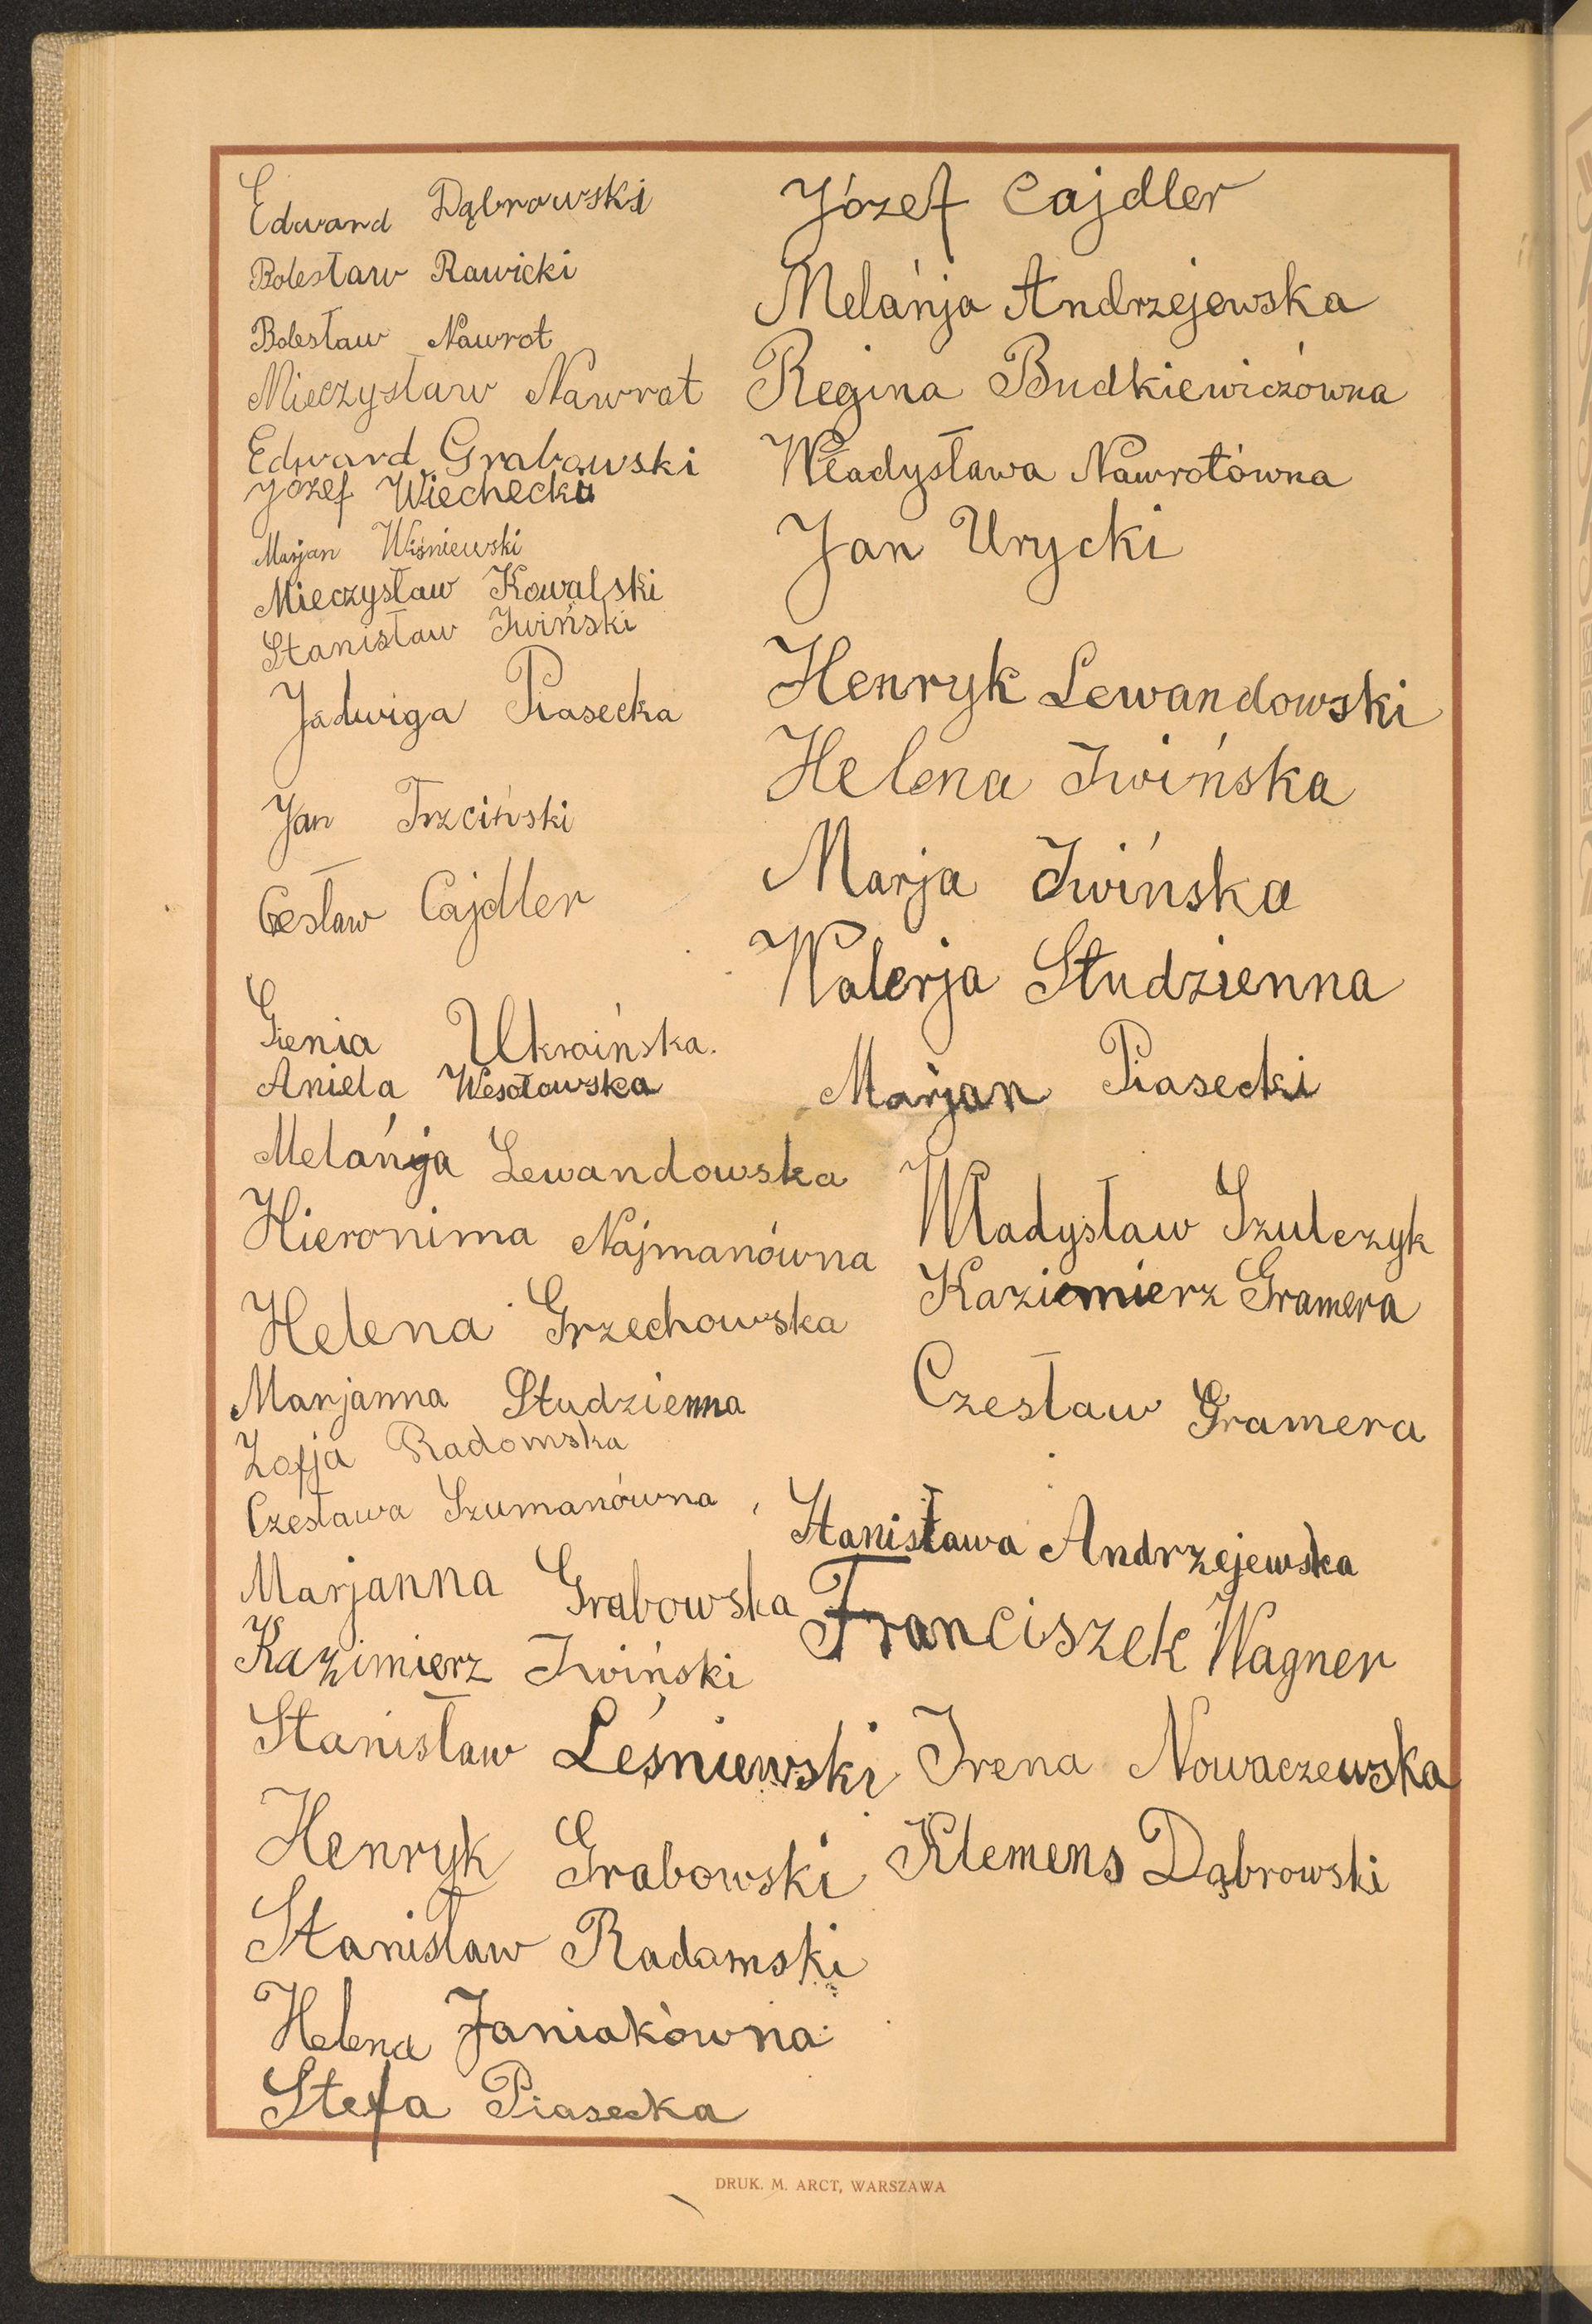 Edward Dąbrowski
Bolesław Rawicki
Bolesław Nawrot
Mieczysław Nawrot
Edward Grabowski
Józef Wiechecki
Marjan Wiśniewski
Mieczysław Kowalski
Stanisław Iwiński
Jadwiga Piasecka
Jan Trzciński
Czesław Cajdler
Gienia Ukraińska.
Aniela Wesołowska
Melańja Lewandowska
Hieronima Najmanówna
Helena Grzechowska
Marjanna Studzienna
Zofja Radomska
Czesława Szumanówna
Marjanna Grabowska
Kazimierz Iwiński
Stanisław Leśniewski
Henryk Grabowski
Stanisław Radomski
Helena Janiakówna
Stefa Piasecka
Józef Cajdler
Melańja Andrzejewska
Regina Budkiewiczówna
Władysława Nawrotówna
Jan Urycki
Henryk Lewandowski
Helena Iwińska
Marja Iwińska
Walerja Studzienna
Marjan Piasecki
Władysław Szulczyk
Kaziemierz Gramera
Czesław Gramera
Stanisława Andrzejewska
Franciszek Wagner
Irena Nowaczewska
Klemens Dąbrowski
DRUK. M. ARCT, WARSZAWA